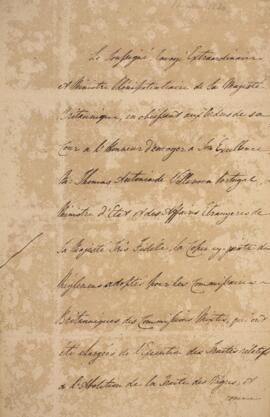 Le Soussigné Envoyé Extraordinaire
et Ministre Plénipotentiaire de Sa Majesté
Britannique, en obeissant aux Ordres de sa
Cour a l'Honneur d'envoyer à Son Excellence
Mr. Thomas Antonio de Villanova Portugal,
Ministre d'Etat et des Affaires Etrangeres de
Sa Majesté Très Fidele, la Copie des
Réglemens adoptés pour les Commissaires
Britanniques des Commissions Mixtes, qui ont
été chargées de l'Execution des Traités relatifs
à l'Abolition de la Traite des Nègres, et